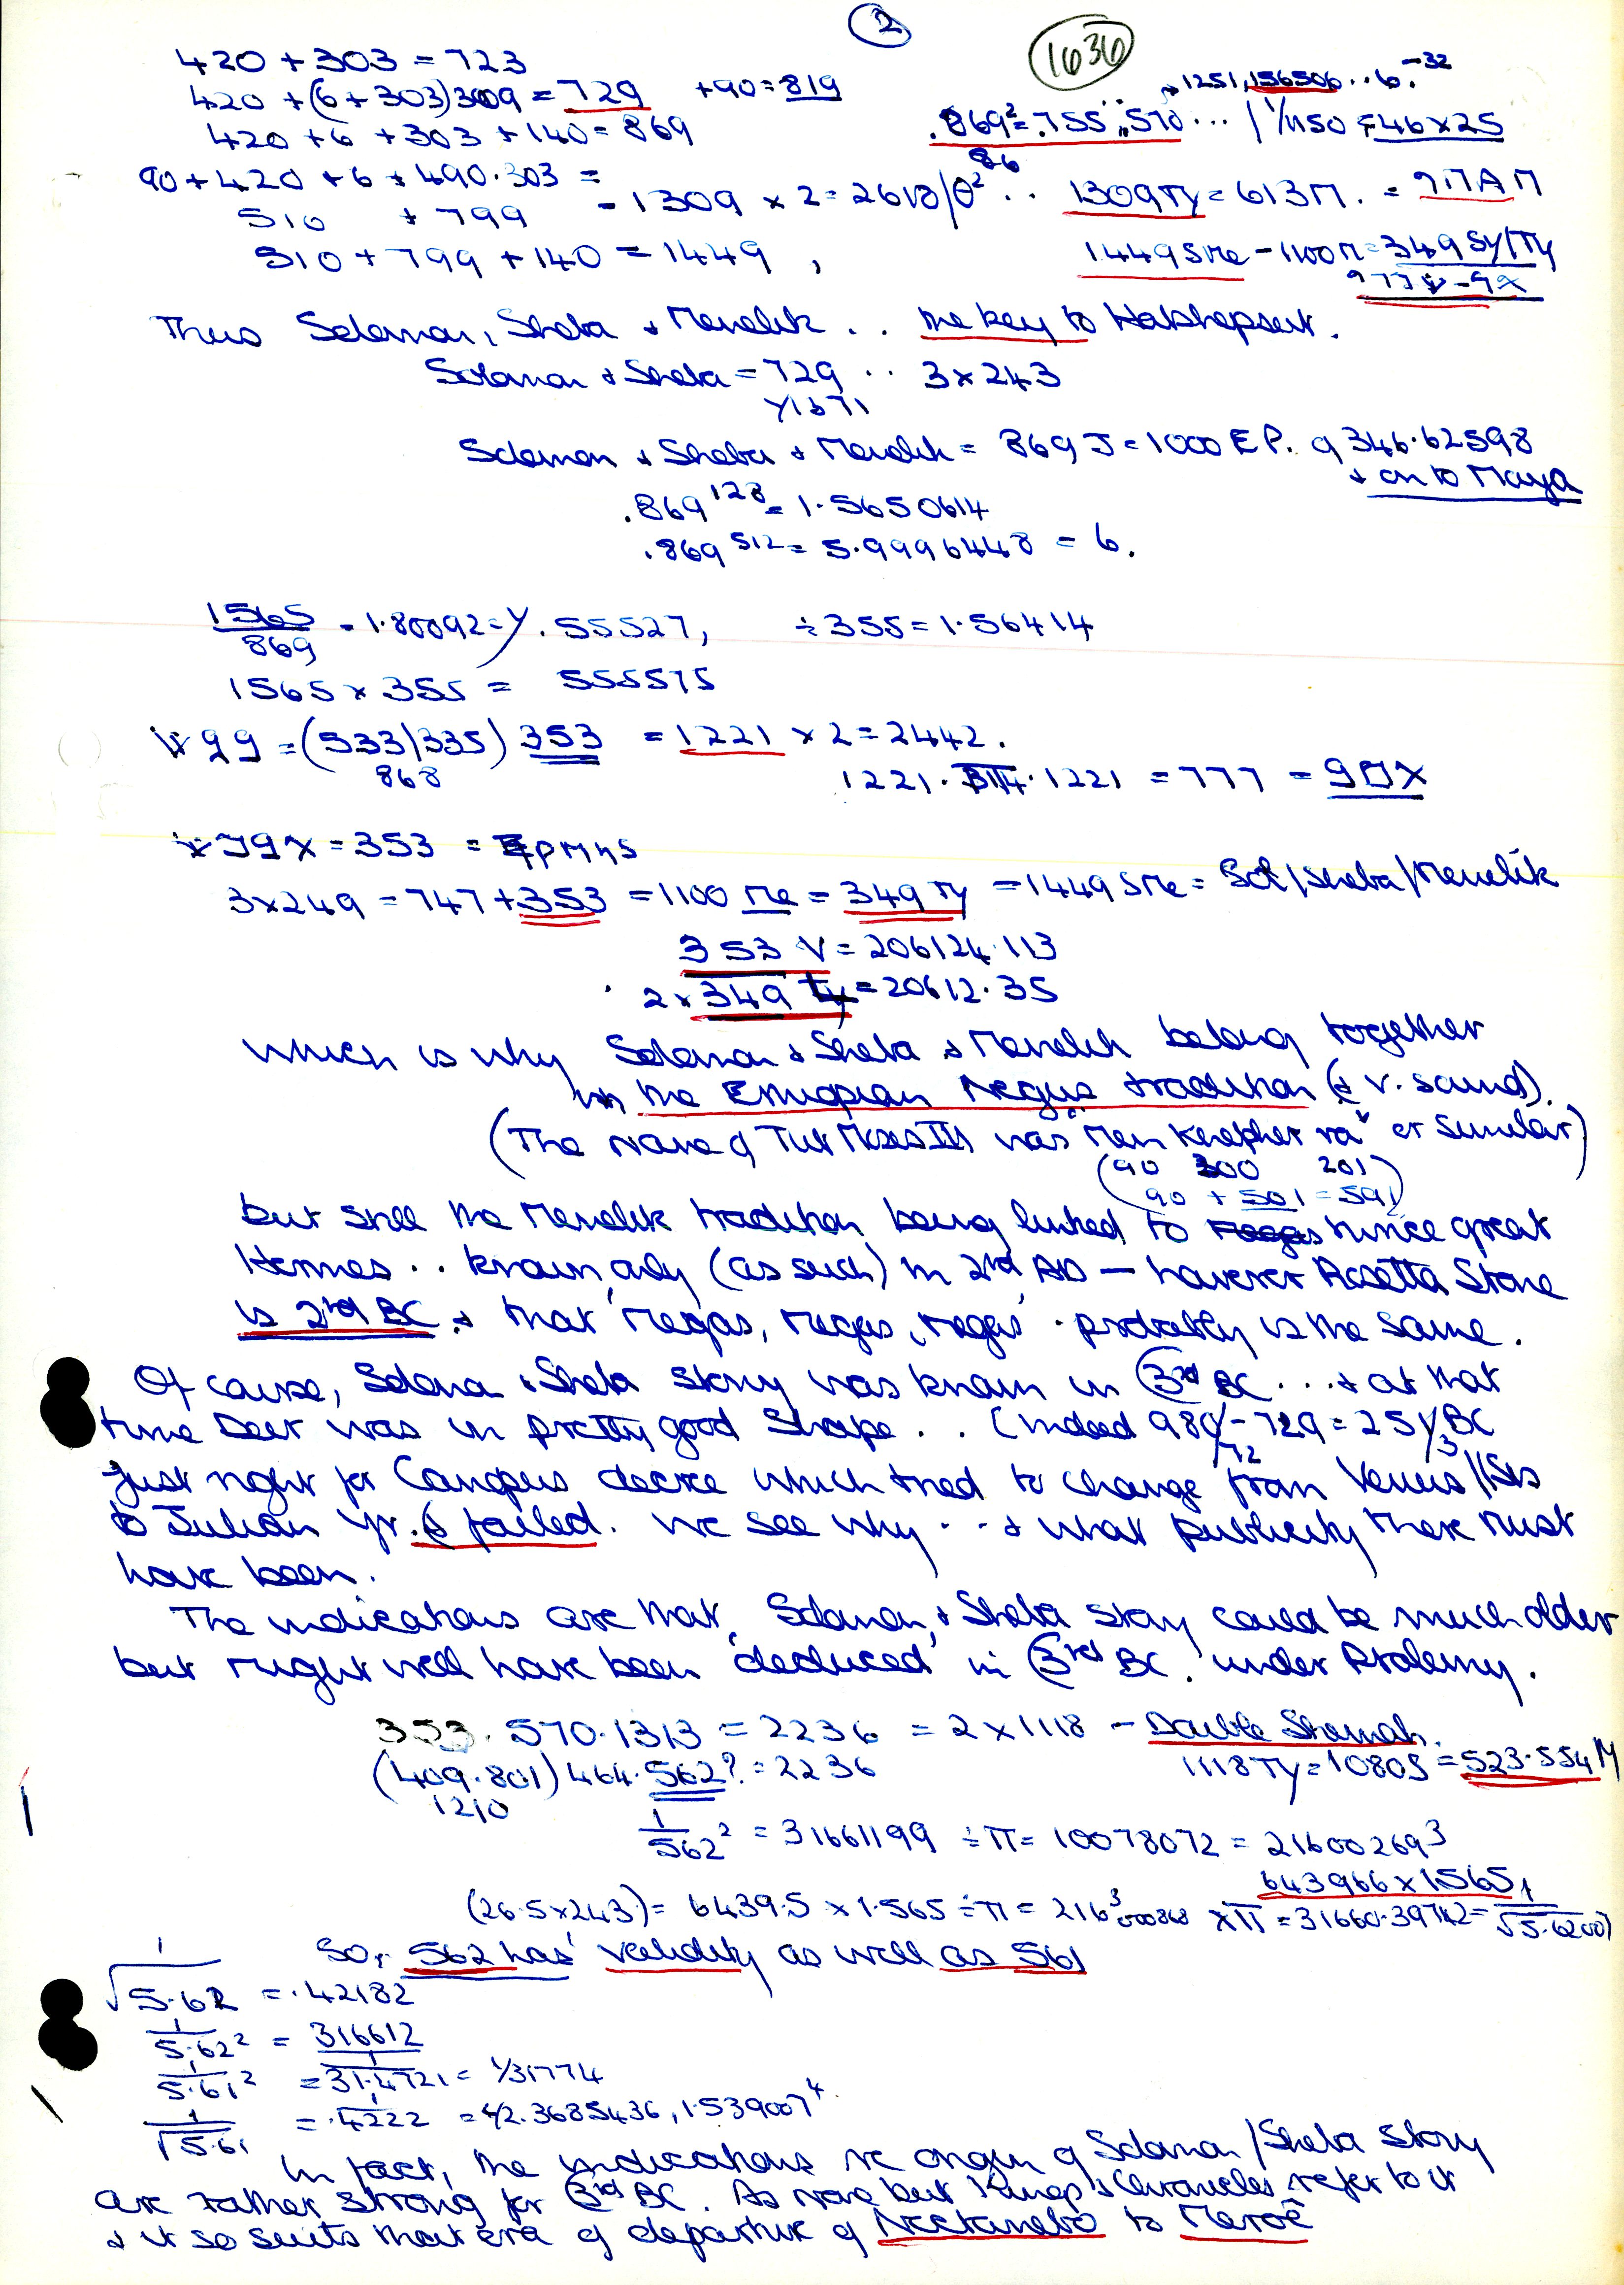 2
1636
420 + 303 = 723
420 + (6 + 303) 309 = 729 +90 = 819
1251,156506 .. 6.⁻³²
420 + 6 + 303 + 140 = 869
.869² = .755,,570 ... 46 x 25
90 + 420 + 6 + 490.303 =
510 + 799 = 1309 x 2 = 2618/θ² .. 1309 Ty = 613 M. =
510 + 799 + 140 = 1449,
1449 SMe - 1100 M = 349 Sy/Ty
Thus Solomon, Sheba + Menelik .. the key to Hatshepsut.
Solomon + Sheba = 729 .. 3 x 243
Solomon + Sheba + Menelik = 869 J = 1000 EP. 9 346.62598
+ on to Maya
.869 128 = 1.5650614
.869 512 = 5.9996448 = 6.
1565/869 = 1.80092 = y .55527, ÷ 355 = 1.56414
1565 x 355 = 555575
99 = (533/335) 353 = 1221 x 2 = 2442.
868
1221 . 314 . 1221 = 777 =
= 353 =
3 x 249 = 747 + 353 = 1100 Me = 349 Ty = 1449 SMe = Sol/Sheba/Menelik
353 V = 206124.113
2 x 349 Ty = 20612.35
which is why Solomon + Sheba + Menelik belong together
in the Ethiopian Negus tradition (+ v. sound).
(The name of Tut Moses III was "Men Kheper ra" or similar)
(90 300 201)
90 + 501 = 591)
but still the Menelik tradition being linked to thrice great
Hermes .. known only (as such) in 2nd AD — however Rosetta Stone
is 2nd BC + that 'Megas, Megas, Megas' . probably is the same.
Of cause, Solomon + Sheba story was known in 3rd BC ... + at that
time Deer was in pretty good shape .. (indeed 980/- 729 = 251 BC
72 3
just right for Canopus decree which tried to change from Venus/Isis
to Julian yr. & failed. We see why ... + what publicity there must
have been.
The indications are that, Solomon + Sheba story could be much older
but might well have been 'deduced' in 3rd BC. under Ptolemy.
353 . 570 . 1313 = 2236 = 2 x 1118 — Double Shemah.
(409.801) 464.562? = 2236
1210
1118 Ty = 10805 = 523.554 M
1/562² = 31661199 ÷ π = 10078072 = 21600269³
643966 x 1.565
(26.5 x 243) = 6439.5 x 1.565 ÷ π = 216³ 000868 x π = 31660.39742 = 1/√5.6200)
So, 562 has validity as well as 561
1/√5.62 = .42182
1/5.62² = 316612
1/5.61² = 1/31.4721 = 1/31774
1/√5.61 = .4222 = 1/2.3685436, 1.539007⁴
In fact, the indications re origin of Solomon/Sheba story
are rather strong for 3rd BC. As none but Kings + Chronicles refer to it
+ it so suits that era of departure of Nectanebo to Meroë